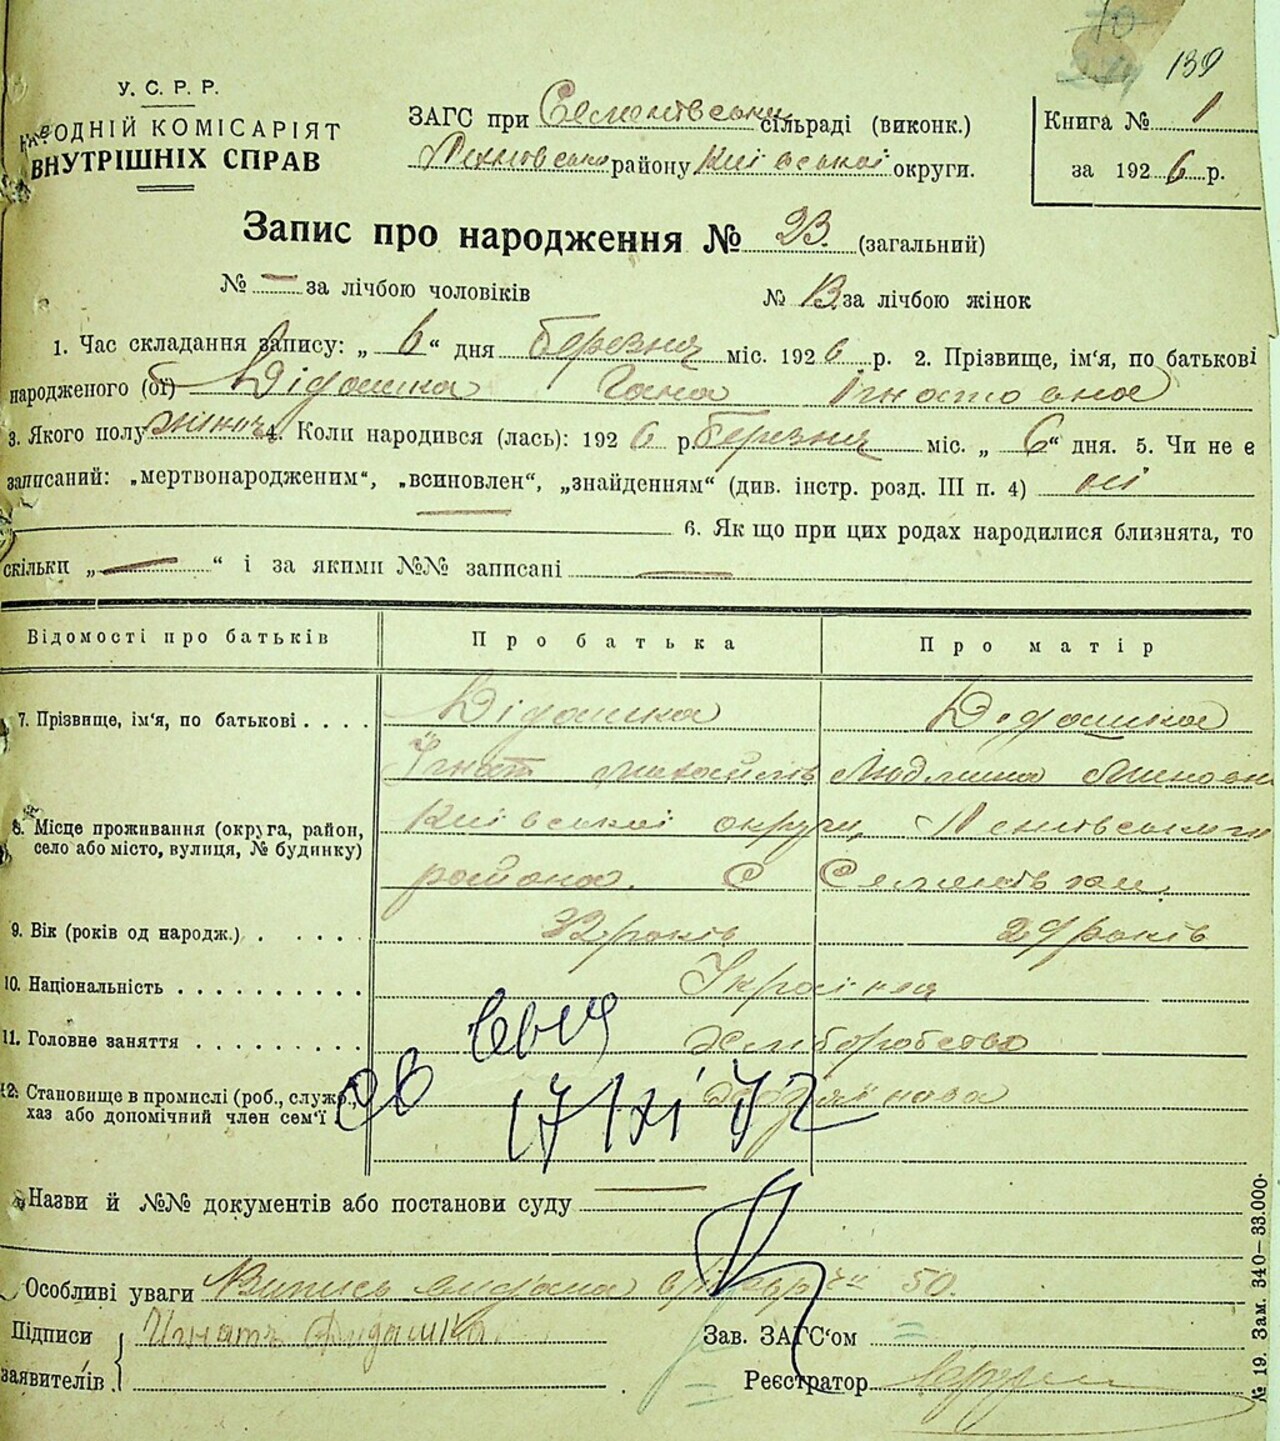 139
У. С. Р. Р.
НАРОДНІЙ КОМІСАРІЯТ
ВНУТРІШНІХ СПРАВ
ЗАГС при сільраді (виконк.)
району Київської округи.
Книга № 1
за 1926 р.
Запис про народження № 23 (загальний)
№ — за лічбою чоловіків № 13 за лічбою жінок
1. Час складання запису: „ 6 “ дня березня міс. 1926 р. 2. Прізвище, ім'я, по батькові
народженого (ої) Дідашка Гана Ігнатовна
3. Якого полу жіноч 4. Коли народився (лась): 1926 р. березня міс. „ 6 “ дня. 5. Чи не є
записаний: „мертвонародженим“, „всиновлен“, „знайденням“ (див. інстр. розд. III п. 4) ні
6. Як що при цих родах народилися близнята, то
скільки „ — “ і за якими №№ записані —
Відомості про батьків Про батька Про матір
7. Прізвище, ім'я, по батькові . . . . Дідашка Дідашка
Ігнат Михайлів Людмила
8. Місце проживання (округа, район, село або місто, вулиця, № будинку) Київської округи,
района. С
9. Вік (років од народж.) . . . . . 32 років 29 років
10. Національність . . . . . . . . . . Україна
11. Головне заняття . . . . . . . . . Хліборобство
12. Становище в промислі (роб., служб., хаз або допомічний член сем'ї
17/XI 72
Назви й №№ документів або постанови суду —
Особливі уваги Випись видана 50.
Підписи заявителів Игнатъ Дидашка
Зав. ЗАГС'ом
Реєстратор
№ 19. Зам. 340—33.000.